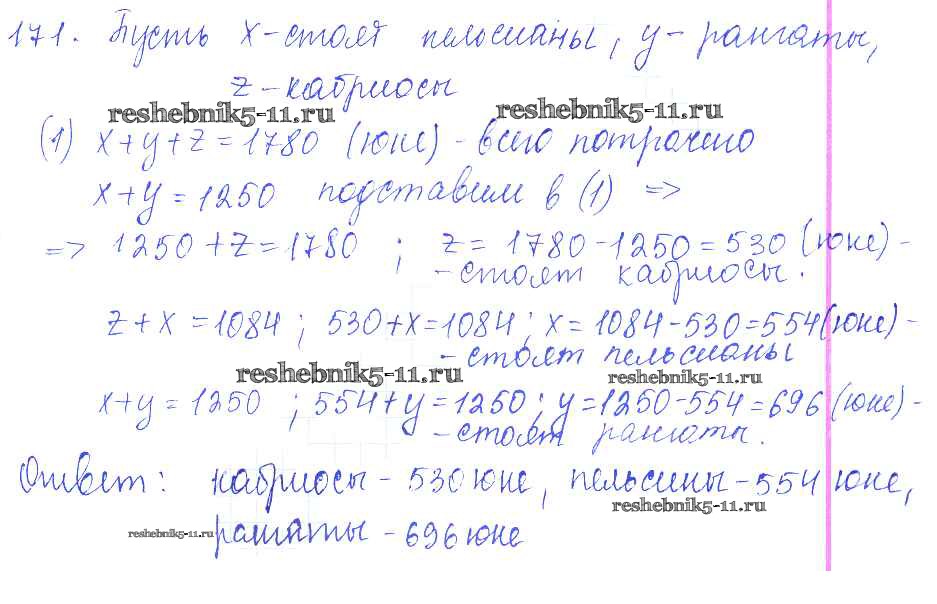 171. Пусть x - стоят пельсианы, y - рангаты,
z - кабриосы
reshebnik5-11.ru reshebnik5-11.ru
(1) x+y+z=1780 (юне) - всего потрачено
x+y=1250 подставим в (1) =>
=> 1250+z=1780 ; z=1780-1250=530 (юне) -
- стоят кабриосы.
z+x=1084 ; 530+x=1084 ; x=1084-530=554 (юне) -
- стоят пельсианы
reshebnik5-11.ru reshebnik5-11.ru
x+y=1250 ; 554+y=1250 ; y=1250-554=696 (юне) -
- стоят рангаты.
Ответ: кабриосы - 530 юне, пельсины - 554 юне,
reshebnik5-11.ru
reshebnik5-11.ru - 696 юне